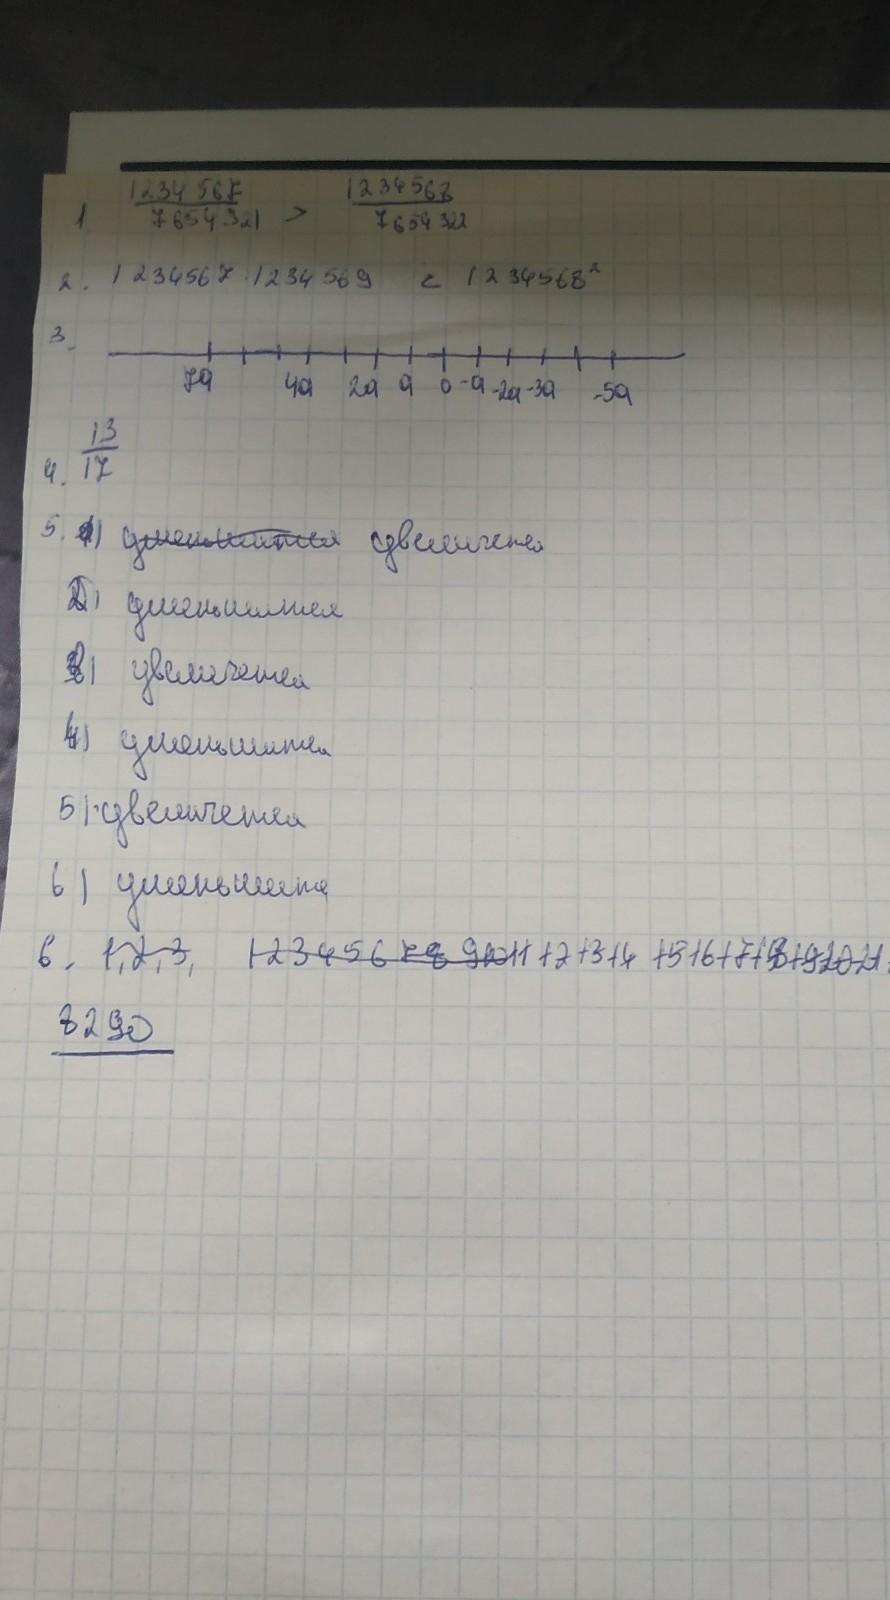 1 1234567/7654321 > 1234568/7654322
2. 1234567·1234569 < 1234568²
3.
7a 4a 2a a 0 -a -2a -3a -5a
4. 13/17
5. 1) уменьшится увеличется
2) уменьшится
3) увеличется
4) уменьшится
5) увеличется
6) уменьшитя
6. 1,2,3, 1234567891011 12 13 14 15 16 17 18 19 20 21
8290